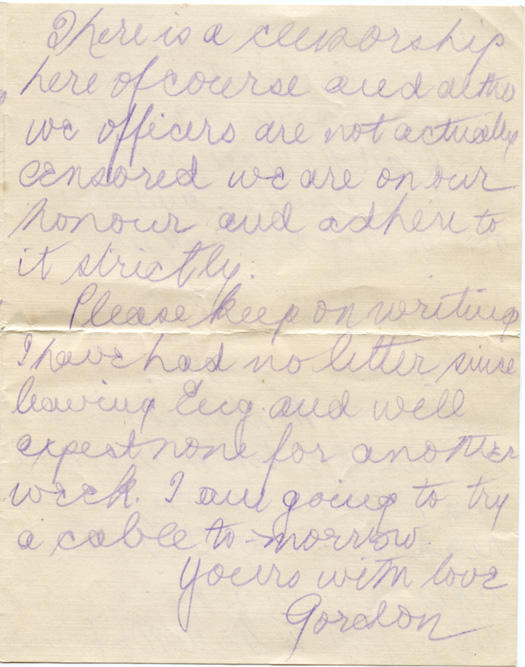 There is a censorship
here of course and altho
we officers are not actually
censored we are on our
honour and adhere to
it strictly.
Please keep on writing
I have had no letter since
leaving Eng. and will
expect none for another
week. I am going to try
a cable to-morrow.
Yours with love
Gordon